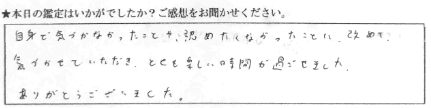 ★本日の鑑定はいかがでしたか？ご感想をお聞かせください。
自身で気づかなかったことや、認めたくなかったことに、改めて、
気づかせていただき、とても楽しい時間が過ごせました。
ありがとうございました。